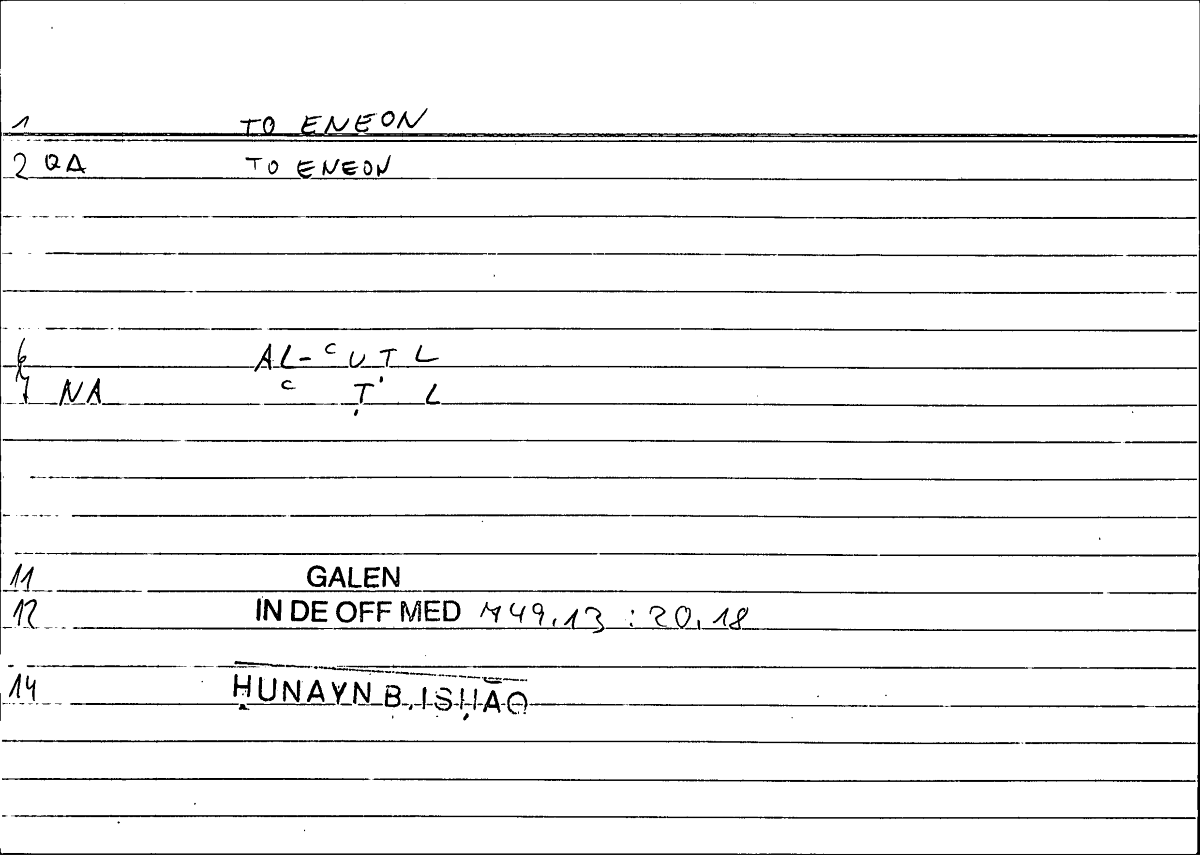 1 TO ENEON
2 QA TO ENEON
6 AL-ᶜUTL
7 NA ᶜ Ṭ L
11 GALEN
12 IN DE OFF MED 749.13 : 20.18
14 ḤUNAYN B. ISḤĀQ